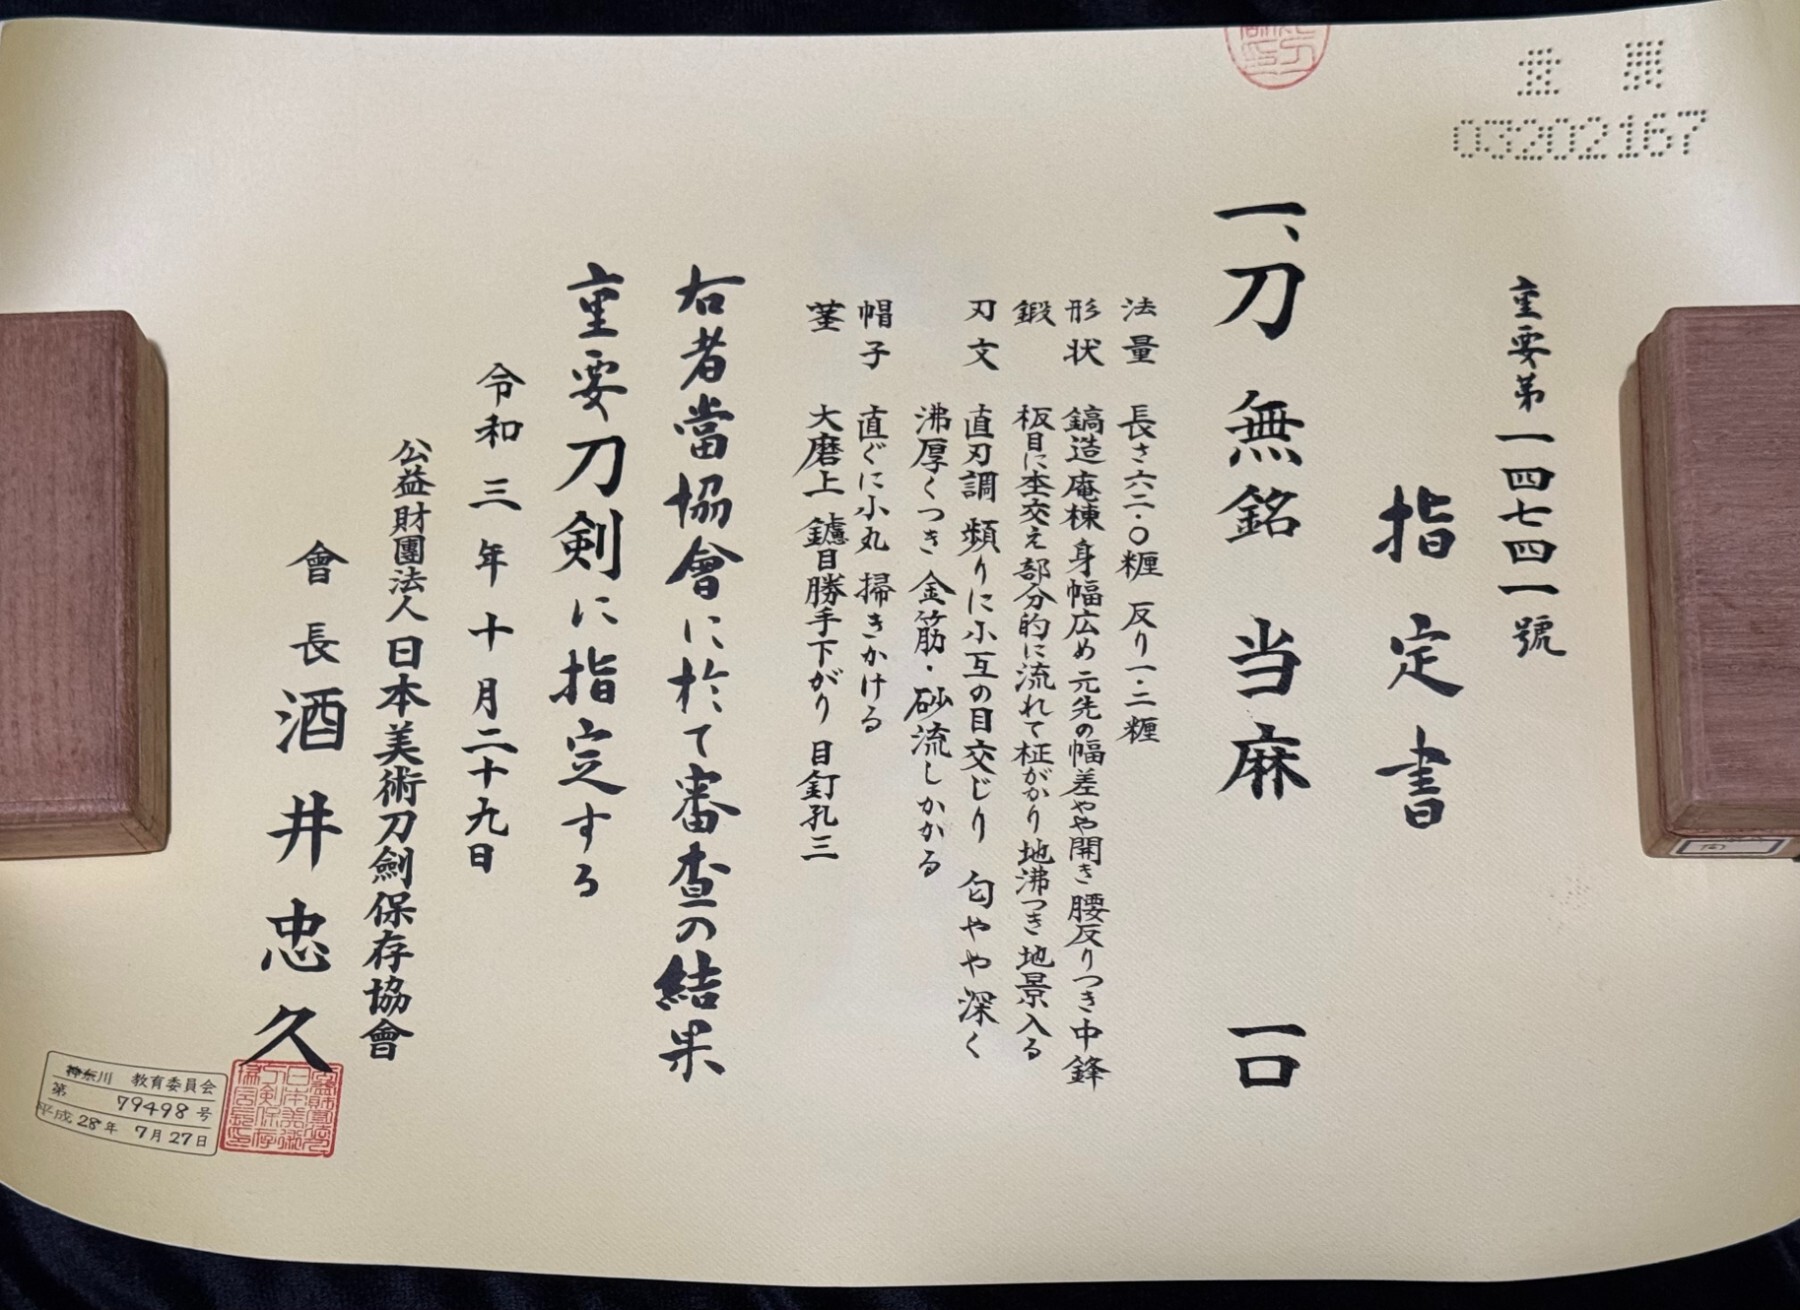 03202167
重要第一四七四一號
指定書
一、刀 無銘 当麻 一口
法量 長さ六二・〇糎 反り一・二糎
形状 鎬造 庵棟 身幅広め 元先の幅差やや開き 腰反りつき 中鋒
鍛 板目に杢交え 部分的に流れて柾がかり 地沸つき 地景入る
刃文 直刃調 頻りに小互の目交じり 匂やや深く
沸厚くつき 金筋・砂流しかかる
帽子 直ぐに小丸 掃きかける
茎 大磨上 鑢目勝手下がり 目釘孔三
右者當協會に於て審査の結果
重要刀剣に指定する
令和三年十月二十九日
公益財團法人日本美術刀劍保存協會
會長 酒井忠久
神奈川 教育委員会
第 79498 号
平成28年 7月27日